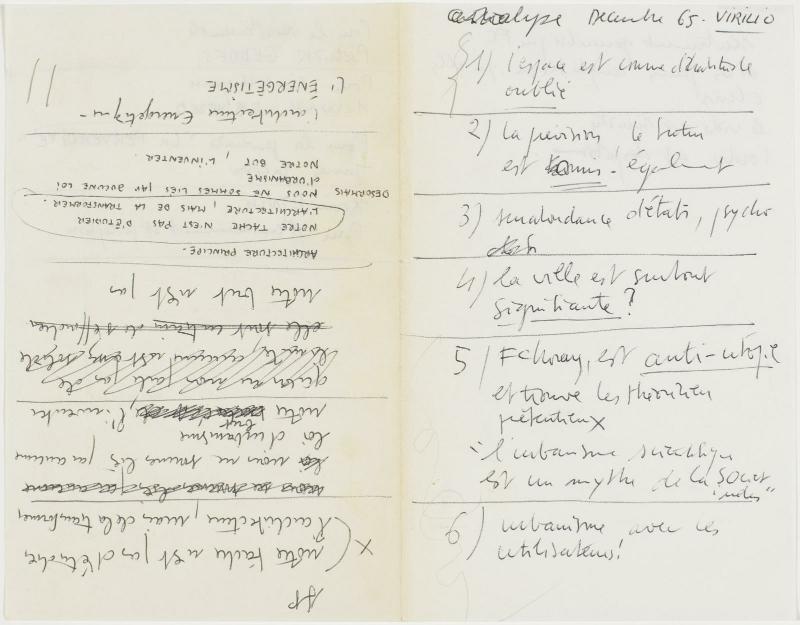 AP
Notre tâche n'est pas d'étudier
l'architecture, mais de la transformer
nous ne sommes liés par aucune
loi d'urbanisme
notre but, l'inventer
qu'on ne nous parle pas de
elle sont en train de s'effondrer
Notre but n'est pas
ARCHITECTURE PRINCIPE.
NOTRE TACHE N'EST PAS D'ÉTUDIER
L'ARCHITECTURE, MAIS DE LA TRANSFORMER.
DESORMAIS NOUS NE SOMMES LIES PAR AUCUNE LOI
d'URBANISME
NOTRE BUT, L'INVENTER
l'architecture Energétique -
L'ÉNERGÉTISME
Decembre 65 - VIRILIO
1) l'espace est comme d'habitude
oublié
2) la prevision le futur
est omis - également
3) surabondance d'états, psycho
4) la ville est surtout
signifiante ?
5) F Choay, est anti-utopie
et trouve les théoriciens
prétentieux
l'urbanisme
est un mythe de la societ
"indus"
6) urbanisme avec les
utilisateurs!